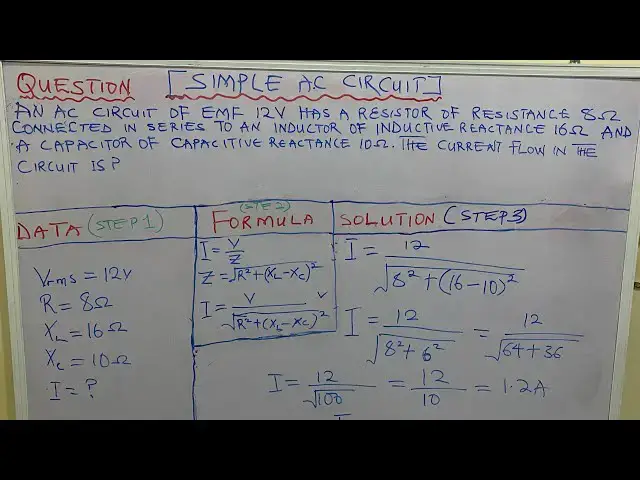 QUESTION [SIMPLE A.C CIRCUIT]
AN AC CIRCUIT OF EMF 12V HAS A RESISTOR OF RESISTANCE 8Ω
CONNECTED IN SERIES TO AN INDUCTOR OF INDUCTIVE REACTANCE 16Ω AND
A CAPACITOR OF CAPACITIVE REACTANCE 10Ω. THE CURRENT FLOW IN THE
CIRCUIT IS?
DATA (STEP 1)
Vrms = 12V
R = 8Ω
XL = 16Ω
Xc = 10Ω
I = ?
(STE 2)
FORMULA
I = V/Z
Z = √R²+(XL-Xc)²
I = V/√R²+(XL-Xc)² V
SOLUTION (STEP 3)
I = 12/√8²+(16-10)²
I = 12/√8²+6² = 12/√64+36
I = 12/√100 = 12/10 = 1.2A